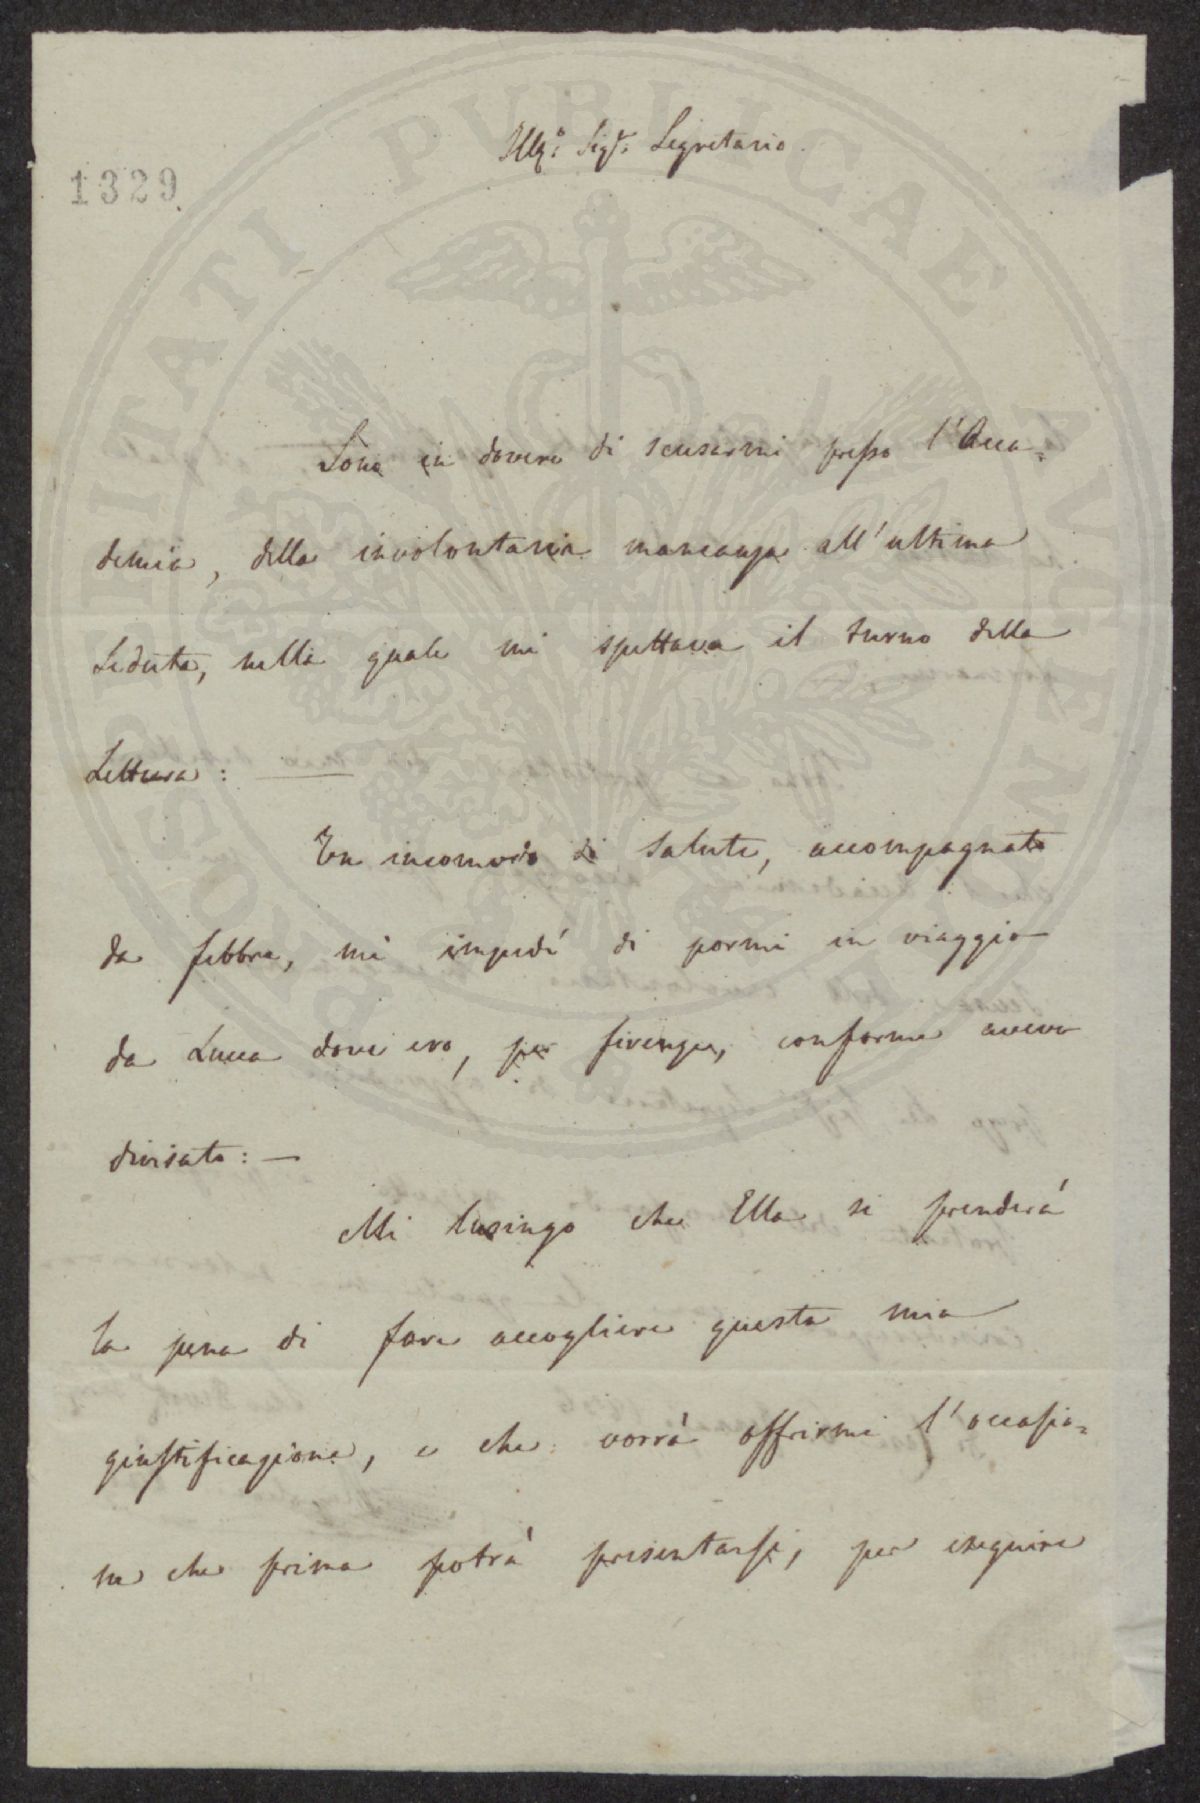 Illo: Sigr: Segretario
1329
Sono in dovere di scusarmi presso l'Acca=
demia, della involontaria mancanza all'ultima
Seduta, nella quale mi spettava il turno della
Lettura: —
Un incomodo di salute, accompagnato
da febbre, mi impedì di pormi in viaggio
da Lucca dove ero, per Firenze, conforme avevo
divisato: —
Mi lusingo che Ella si prenderà
la pena di fare accogliere questa mia
giustificazione, e che vorrà offrirmi l'occasio=
ne che prima potrà presentarsi, per eseguire
PROSPERITATI PUBLICAE AUGENDAE